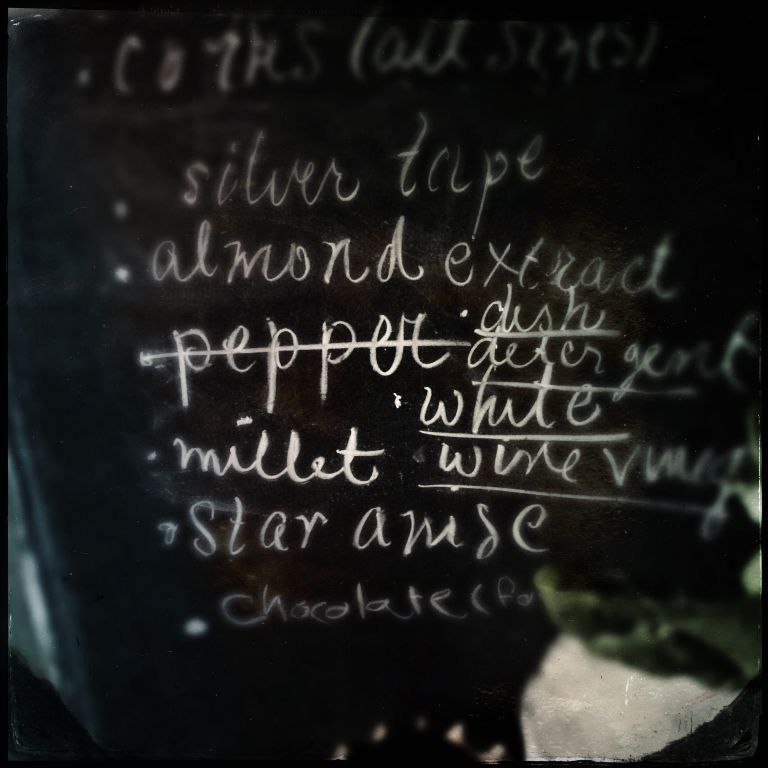 corks (all sizes)
silver tape
almond extract
pepper
dish
detergent
white
millet
wine
star anise
chocolate (fo